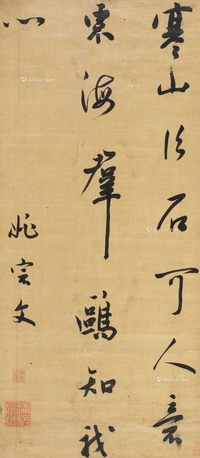 寒山片石可人意
東海羣鷗知我
心
姚宗文